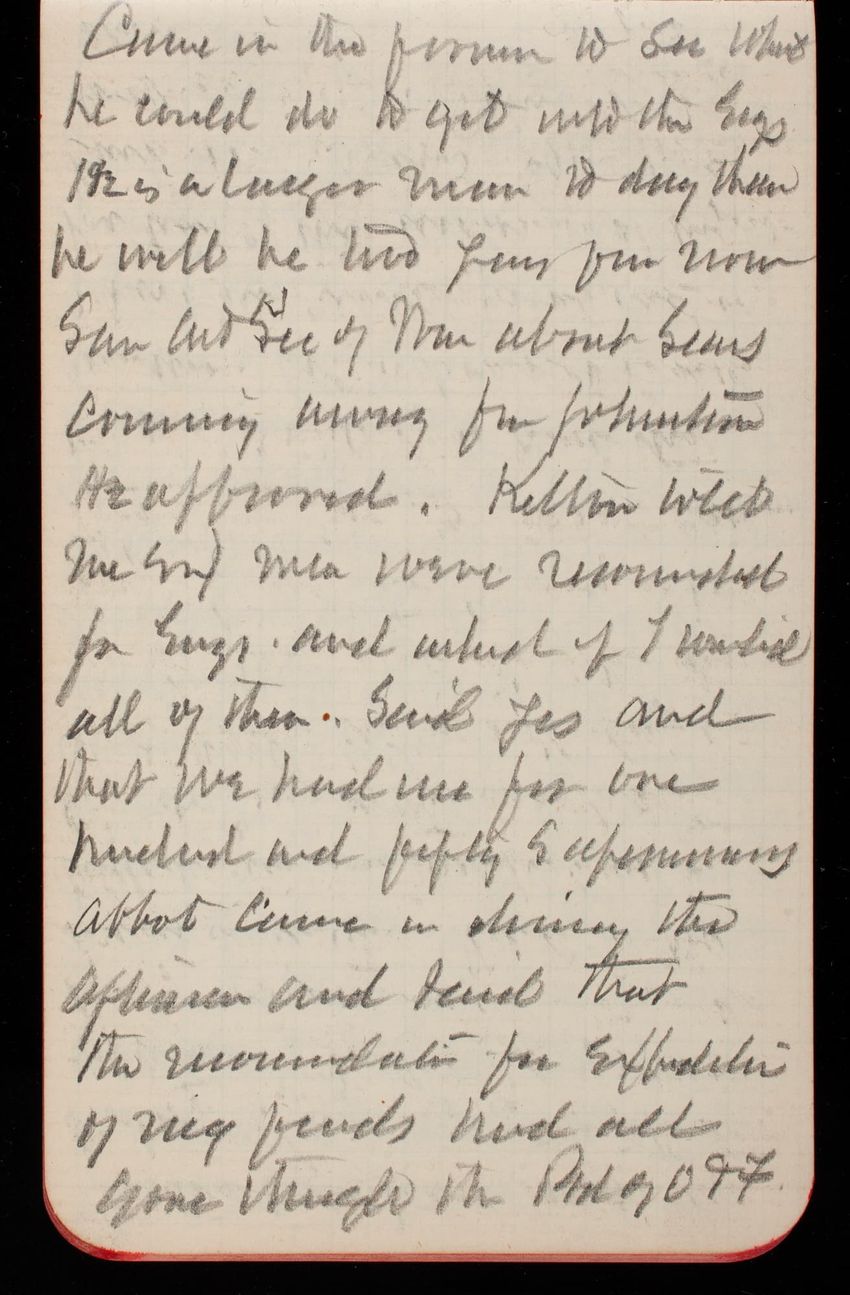 Came in the forenoon to see what
he could do to get into the Engs
He is a larger man to day than
he will be two years from now
Saw Actg Sec of War about Sears
coming away for
He approved. Kelton
me men were recommended
for Engs. and asked if I wanted
all of them. Said yes and
that we had use for one
hundred and fifty
Abbot came in during the
afternoon and said that
the recommendation for Expenditure
of funds had all
gone through the Bd of O & F.